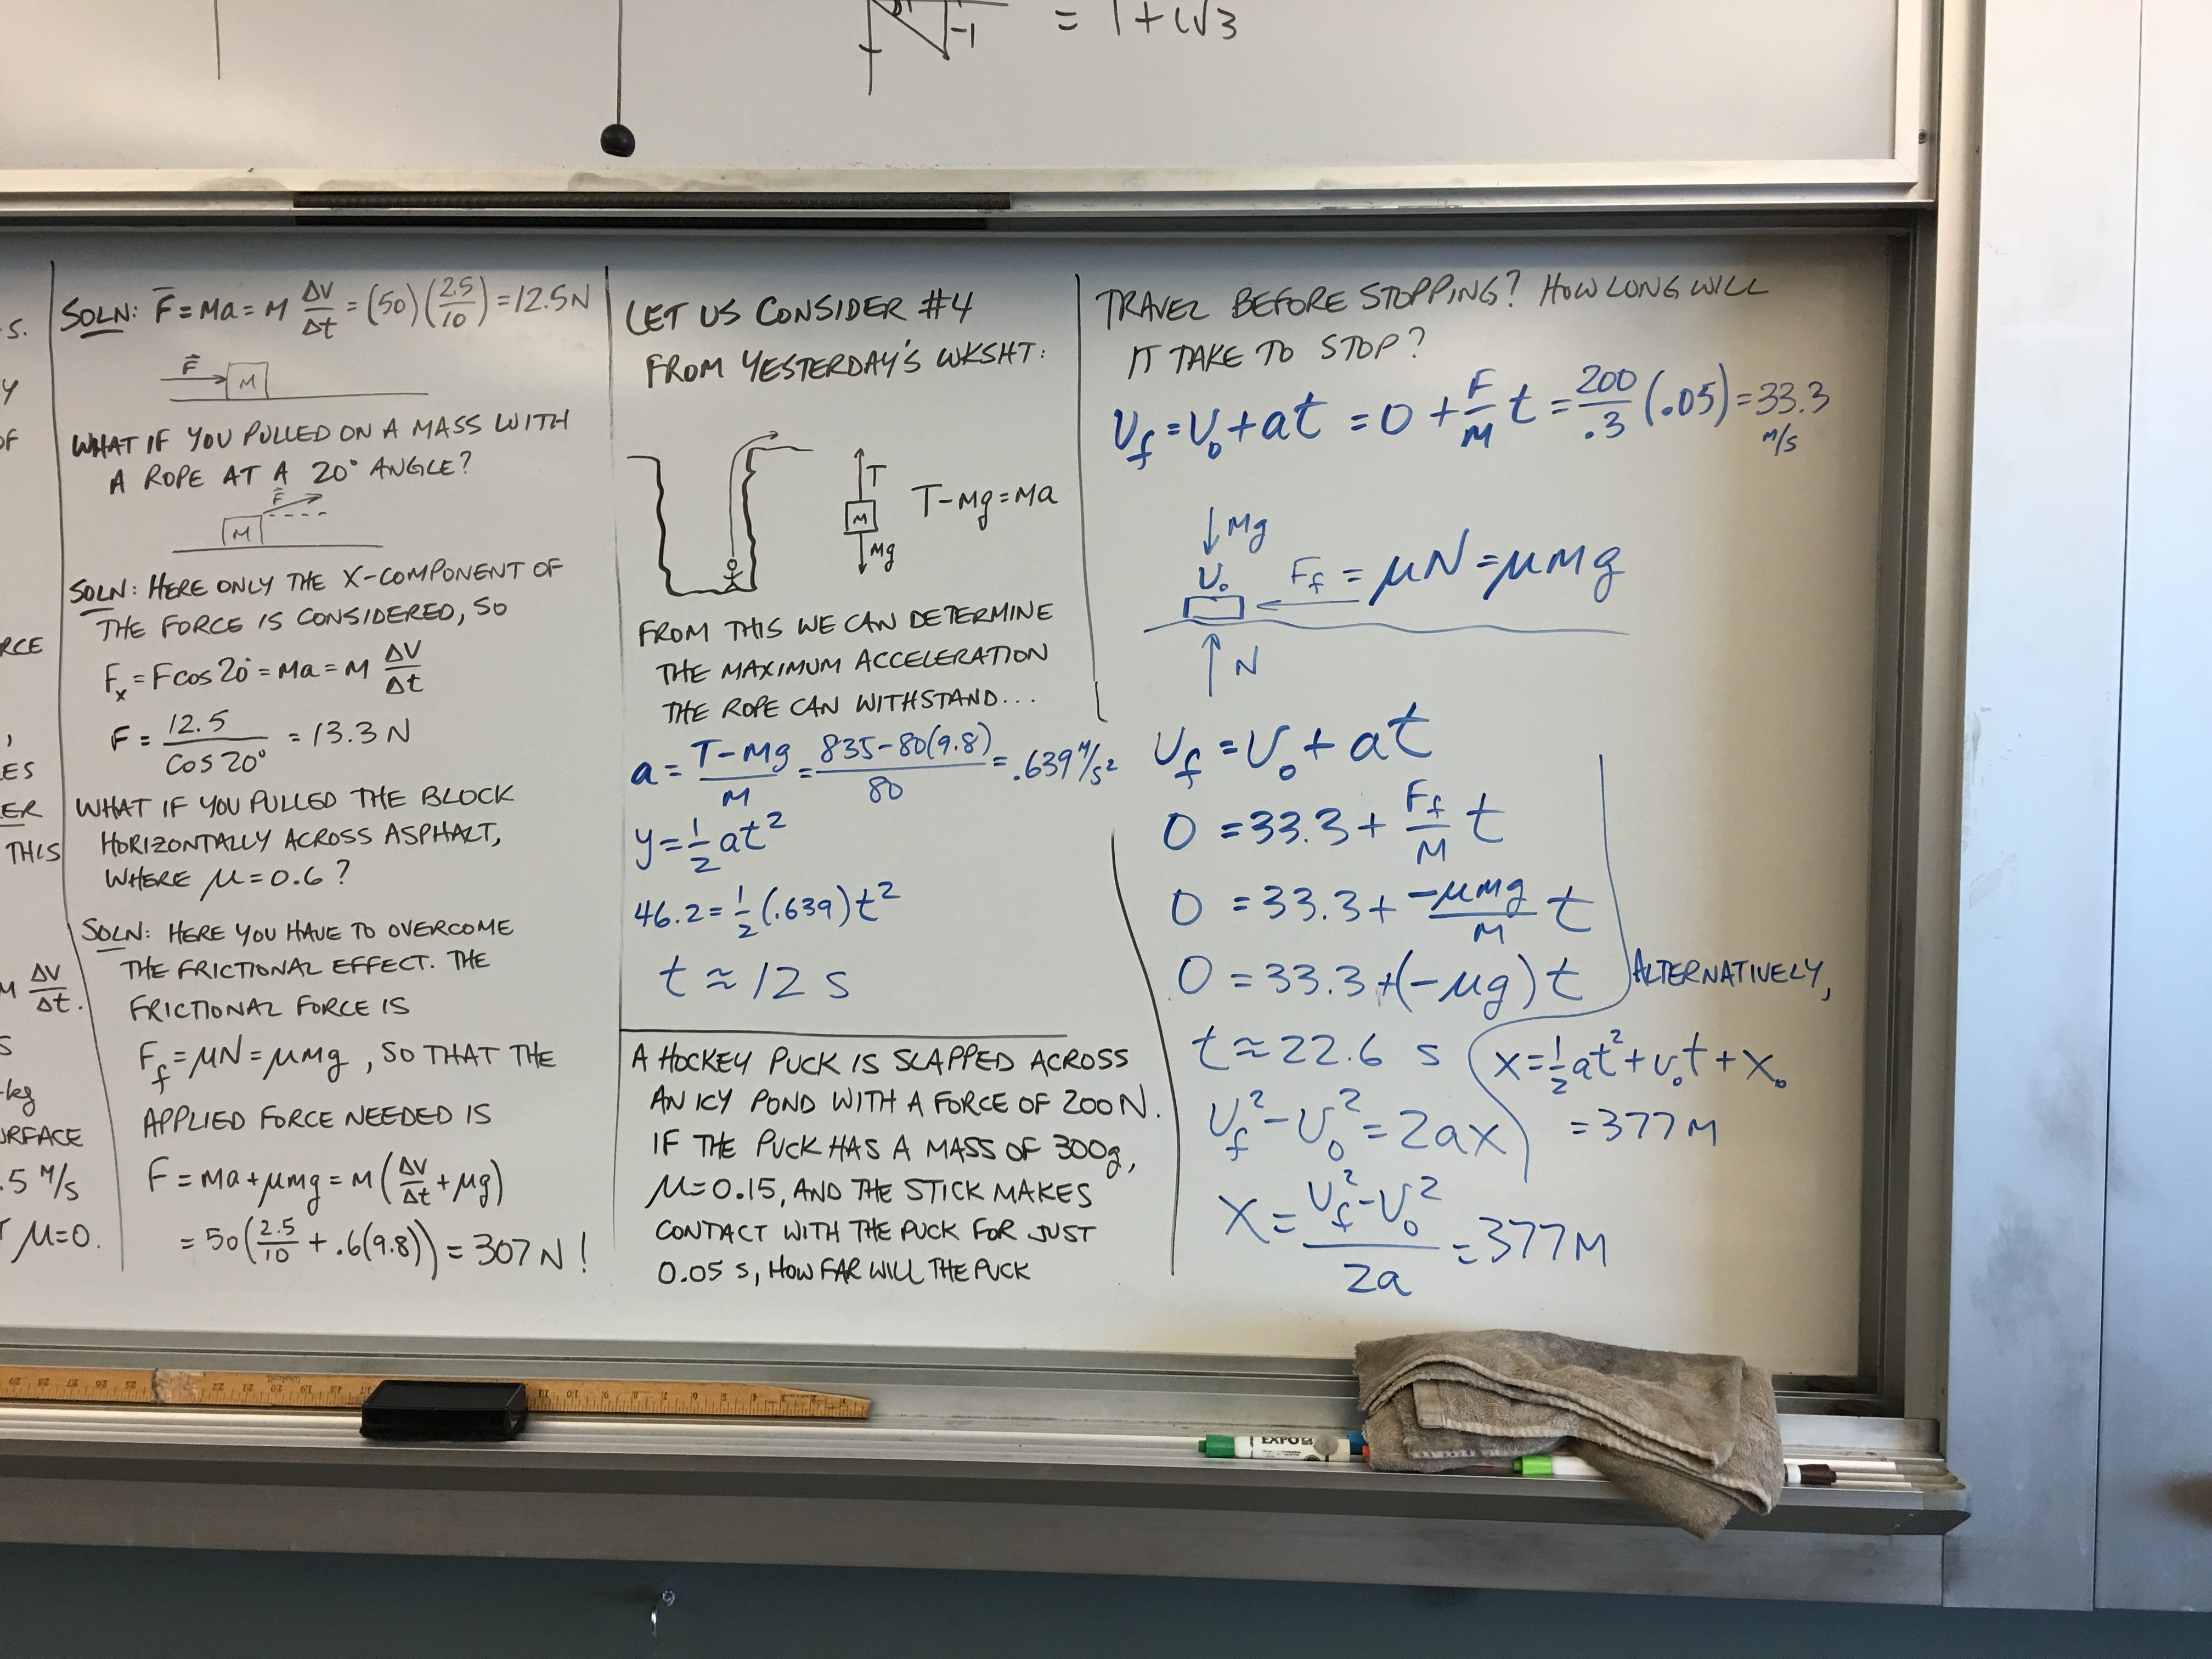 -1
= 1+i√3
S.
Y
OF
RCE
,
ES
ER
THIS
M ΔV/Δt.
S
-kg
URFACE
.5 M/S
T μ=0.
SOLN: F̅ = Ma = M ΔV/Δt = (50)(2.5/10) = 12.5N
F⃗
M
WHAT IF YOU PULLED ON A MASS WITH
A ROPE AT A 20° ANGLE?
F⃗
M
SOLN: HERE ONLY THE X-COMPONENT OF
THE FORCE IS CONSIDERED, SO
Fₓ = F cos 20° = Ma = M ΔV/Δt
F = 12.5/COS 20° = 13.3 N
WHAT IF YOU PULLED THE BLOCK
HORIZONTALLY ACROSS ASPHALT,
WHERE μ=0.6?
SOLN: HERE YOU HAVE TO OVERCOME
THE FRICTIONAL EFFECT. THE
FRICTIONAL FORCE IS
F_f = μN = μMg, SO THAT THE
APPLIED FORCE NEEDED IS
F = Ma + μMg = M(ΔV/Δt + μg)
= 50(2.5/10 + .6(9.8)) = 307 N!
LET US CONSIDER #4
FROM YESTERDAY'S WKSHT:
T
M
Mg
T-Mg=Ma
FROM THIS WE CAN DETERMINE
THE MAXIMUM ACCELERATION
THE ROPE CAN WITHSTAND...
a = T-Mg/M = 835-80(9.8)/80 = .639 M/S²
y = 1/2 at²
46.2 = 1/2 (.639)t²
t ≈ 12 S
A HOCKEY PUCK IS SLAPPED ACROSS
AN ICY POND WITH A FORCE OF 200N.
IF THE PUCK HAS A MASS OF 300g,
μ=0.15, AND THE STICK MAKES
CONTACT WITH THE PUCK FOR JUST
0.05 S, HOW FAR WILL THE PUCK
TRAVEL BEFORE STOPPING? HOW LONG WILL
IT TAKE TO STOP?
V_f = V₀ + at = 0 + F/M t = 200/.3 (.05) = 33.3 M/S
Mg
V₀
F_f = μN = μMg
N
V_f = V₀ + at
0 = 33.3 + F_f/M t
0 = 33.3 + -μMg/M t
0 = 33.3 + (-μg) t
t ≈ 22.6 S
V_f² - V₀² = 2ax
X = V_f² - V₀²/2a = 377M
ALTERNATIVELY,
X = 1/2 at² + V₀t + X₀
= 377 M
29 28 27 26 25 22 21 20 19 18 17 11 10 9 8 7 6 5 4 3 2
EXPO